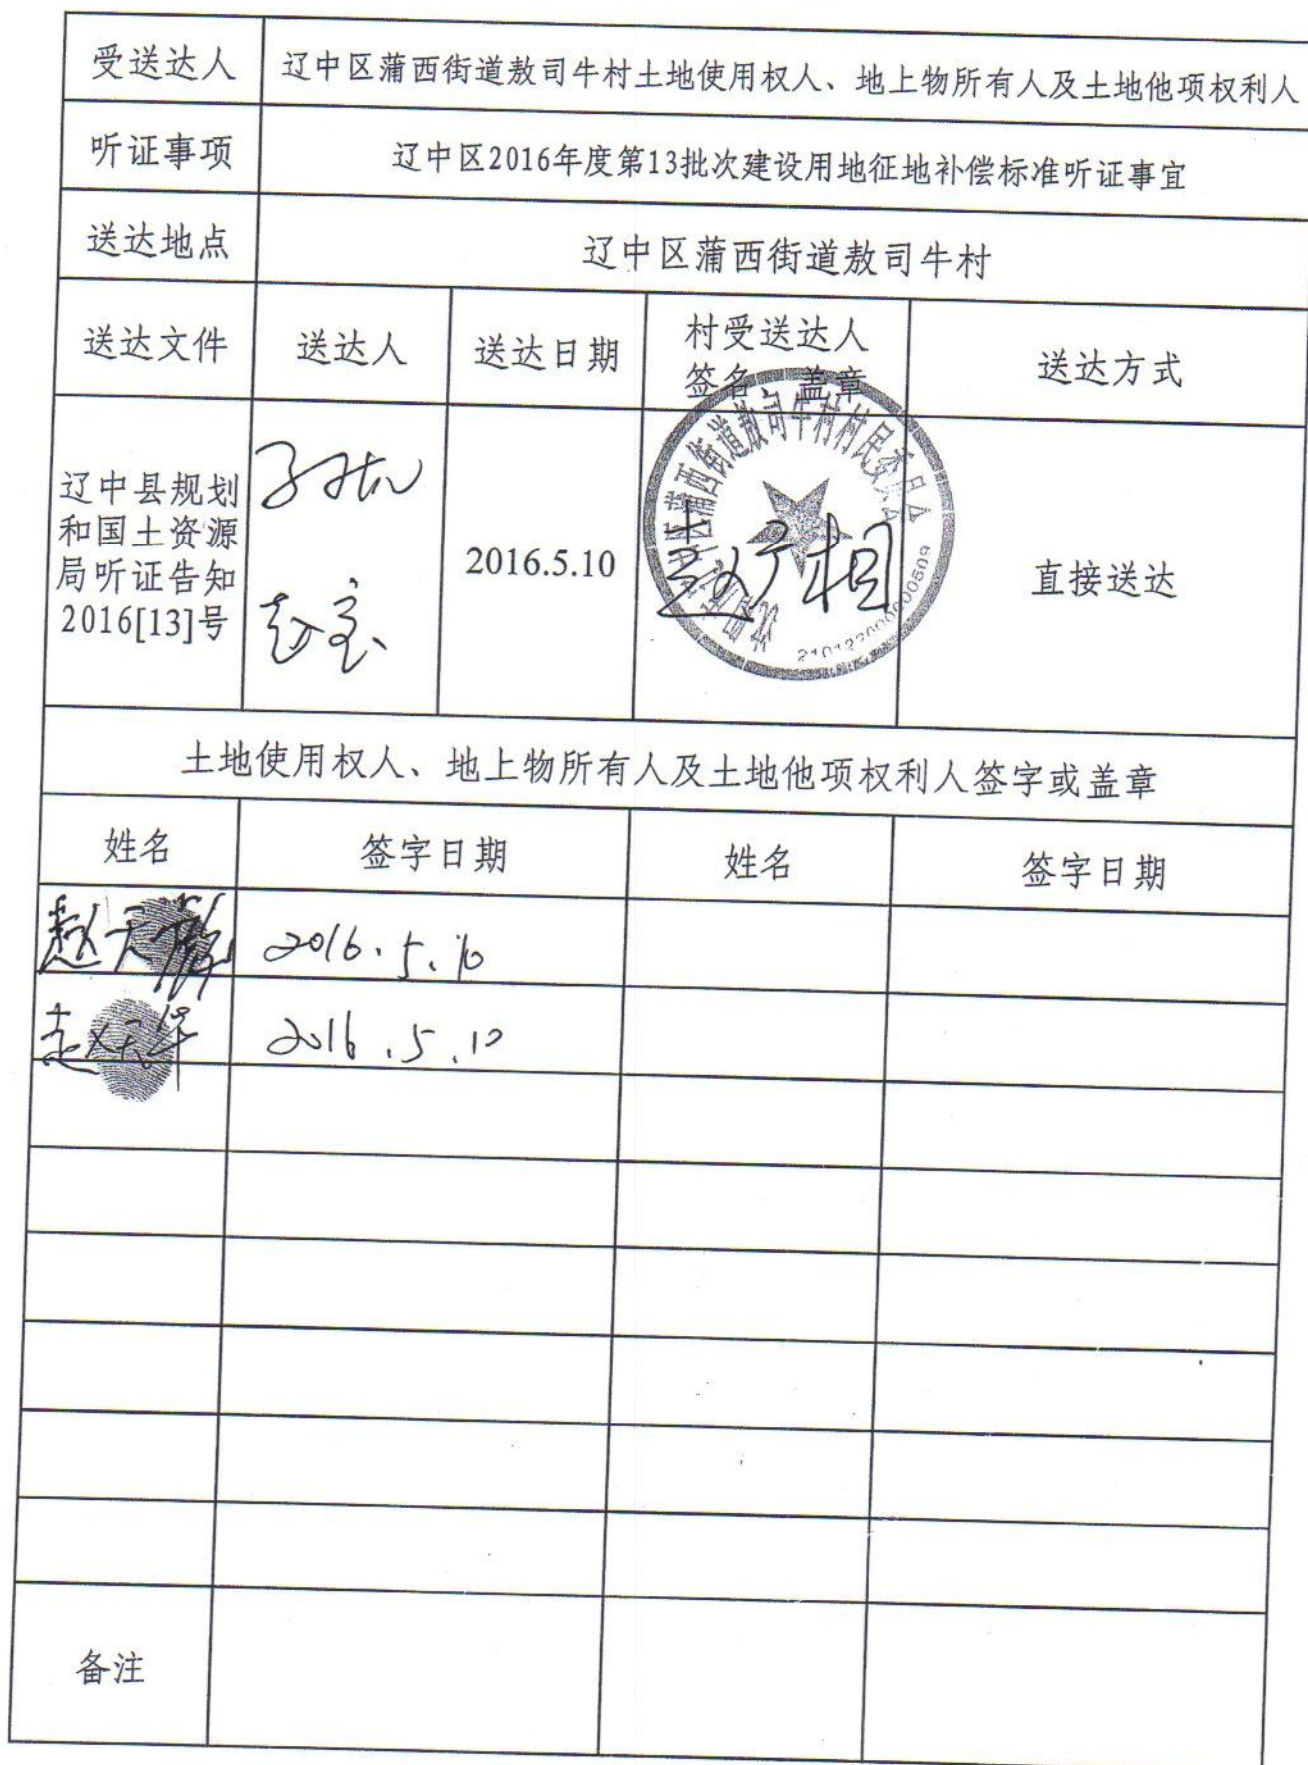 受送达人 辽中区蒲西街道敖司牛村土地使用权人、地上物所有人及土地他项权利人
听证事项 辽中区2016年度第13批次建设用地征地补偿标准听证事宜
送达地点 辽中区蒲西街道敖司牛村
送达文件 送达人 送达日期 村受送达人 送达方式
签名 盖章
辽中县规划
和国土资源
局听证告知
2016[13]号
2016.5.10
赵广相
区蒲西街道敖司牛村村民委员会
直接送达
土地使用权人、地上物所有人及土地他项权利人签字或盖章
姓名 签字日期 姓名 签字日期
赵天 2016.5.10
赵天华 2016.5.10
备注